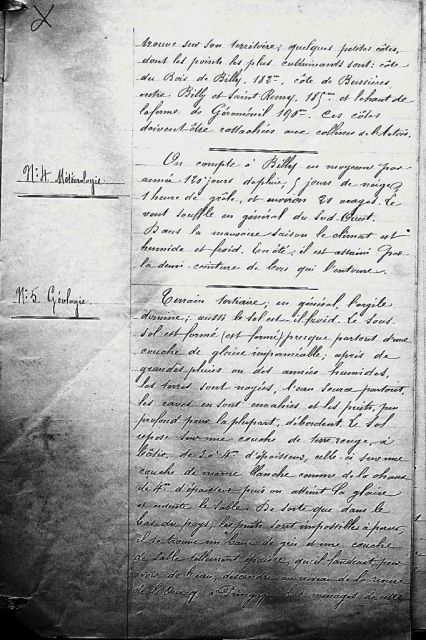 trouve sur son territoire, quelques petites côtes,
dont les points les plus culminants sont: côte
du Bois de Billy. 182m, côte de Bussières
entre Billy et Saint Remy. 185m et le haut de
la ferme de Geroménil 190m. Ces côtes
doivent être rattachées aux collines de l'Artois.
N° 4 Météorologie
On compte à Billy en moyenne par
année 120 jours de pluie, 5 jours de neige,
1 heure de grêle, et environ 20 orages. Le
vent souffle en général du Sud-Ouest.
Dans la mauvaise saison le climat est
humide et froid. En été, il est assaini par
la demi-ceinture de bois qui l'entoure.
N° 5 Géologie.
Terrain tertiaire; en général, l'argile
domine; aussi le sol est-il froid. Le sous-
sol est formé (est formé) presque partout d'une
couche de glaise imperméable; après de
grandes pluies ou des années humides,
les terres sont noyées, l'eau source partout,
les caves en sont envahies et les puits, peu
profond pour la plupart, débordent. Le sol
repose sur une couche de terre rouge, à
bâtir, de 3 à 4m d'épaisseur, celle-ci sur une
couche de marne blanche comme de la chaux
de 4m d'épaisseur, puis on atteint la glaise
et ensuite le sable. De sorte que dans le
bas du pays, les puits sont impossibles à percer,
il se trouve un banc de grès et une couche
de sable tellement épaisse, qu'il faudrait pour
avoir de l'eau, descendre au niveau de la rivière
de l'Ourcq, à ménages de